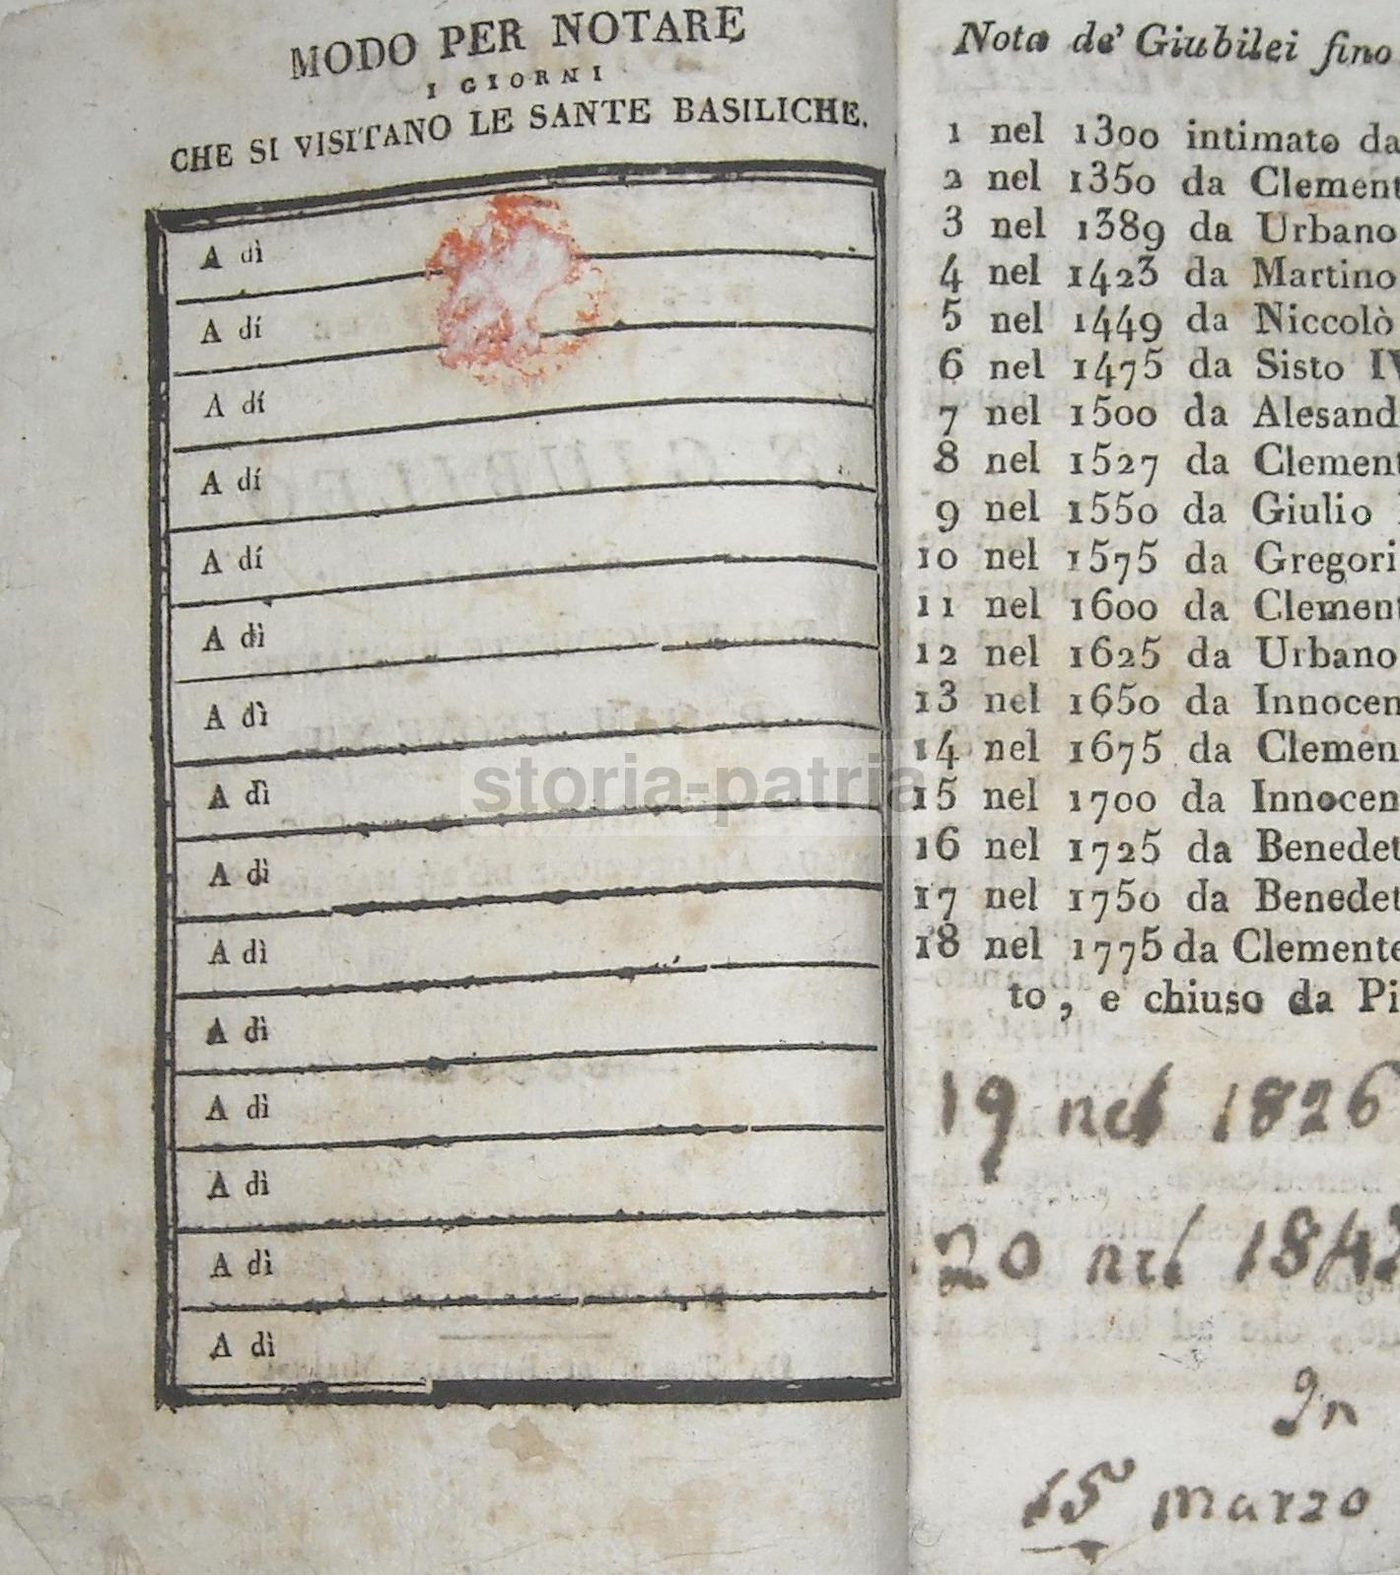 MODO PER NOTARE
I GIORNI
CHE SI VISITANO LE SANTE BASILICHE.
A dì
A dí
A dí
A dí
A dí
A dì
A dì
A dì
A dì
A dì
A dì
A dì
A dì
A dì
A dì
storia-patria
Nota de' Giubilei fino
1 nel 1300 intimato da
2 nel 1350 da Clement
3 nel 1389 da Urbano
4 nel 1423 da Martino
5 nel 1449 da Niccolò
6 nel 1475 da Sisto IV
7 nel 1500 da Alesand
8 nel 1527 da Clement
9 nel 1550 da Giulio
10 nel 1575 da Gregori
11 nel 1600 da Clement
12 nel 1625 da Urbano
13 nel 1650 da Innocen
14 nel 1675 da Clemen
15 nel 1700 da Innocen
16 nel 1725 da Benedet
17 nel 1750 da Benedet
18 nel 1775 da Clemente
to, e chiuso da Pi
19 nel 1826
20 nel 184
In
15 marzo